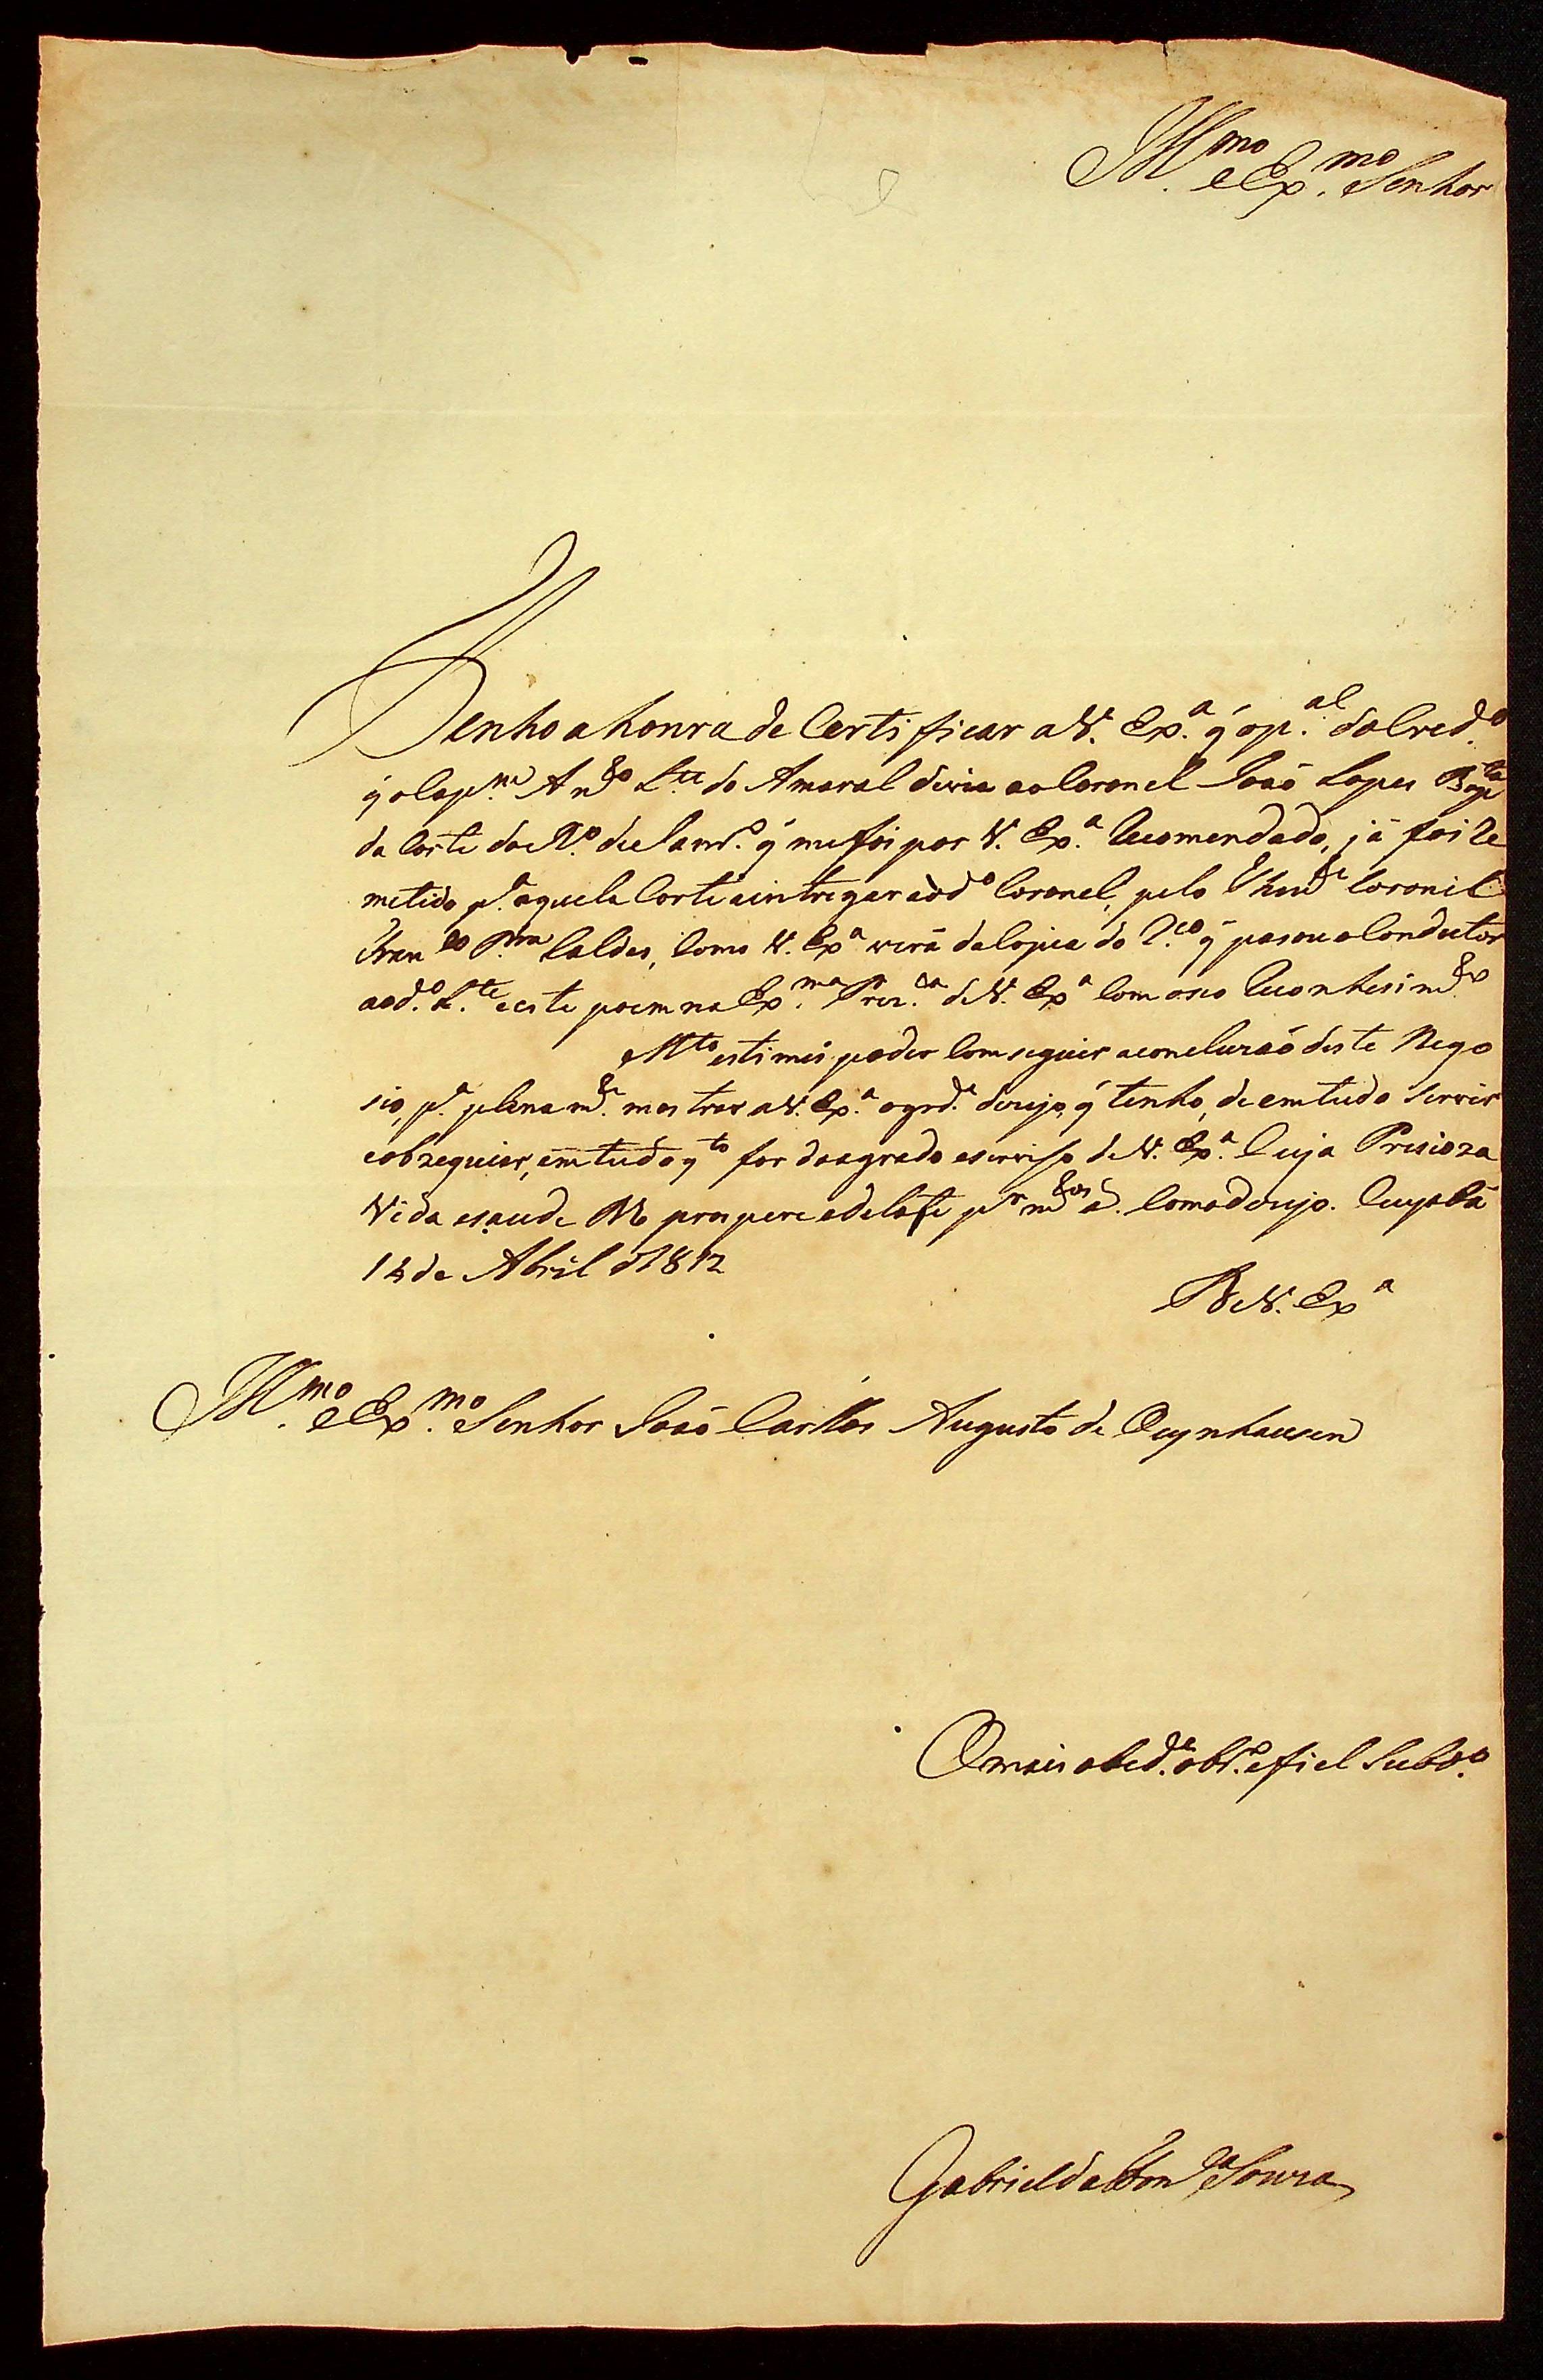 Ill.mo e Ex.mo Senhor
Tenho a honra de Certificar a V. Ex.a q̃ o p.al do Cred.o
q̃ o Cap.m Ant.o L.te do Amaral divia ao Coronel Joaõ Lopes Bap.ta
da Corte do R.o de Janr.o q̃ me foi por V. Ex.a Recomendado, já foi Re
metido p.a aquela Corte a intregar ao d.o Coronel, pelo Thent.e Coronel
Fran.co P.ra Caldas, Como V. Ex.a verá da Copia do R.co q̃ pasou o Condutor
ao d.o L.te e este poem na Ex.ma Prez.ca de V. Ex.a Com o seo Reconhesim.to
M.to estimei poder Comseguir a concluzaõ deste Nego
sio, p.a plenam.te mostrar a V. Ex.a o grd.e dezejo, q̃ tenho, de em tudo Servir
e obzequiar, em tudo q.to for do agrado e serviso de V. Ex.a Cuja Presioza
Vida e saude prospere e delate p.r m.tos a. Como dezejo. Cuyabá
14 de Abril d 1812
De V. Ex.a
Ill.mo e Ex.mo Senhor Joaõ Carllos Augusto de Oeynhausen
O mais obed.e obr.o e fiel Subd.o
Gabriel da Fon.ca e Souza